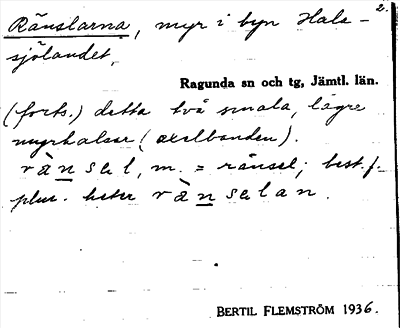 2.
Ränslarna, myr i byn Hals-
sjölandet,
Ragunda sn och tg, Jämtl. län.
(forts.) detta två smala, lägre
myrhalsar (axelbanden).
vänsel, m. = ränsel; best. f.
plur. heter vänselan.
BERTIL FLEMSTRÖM 1936.